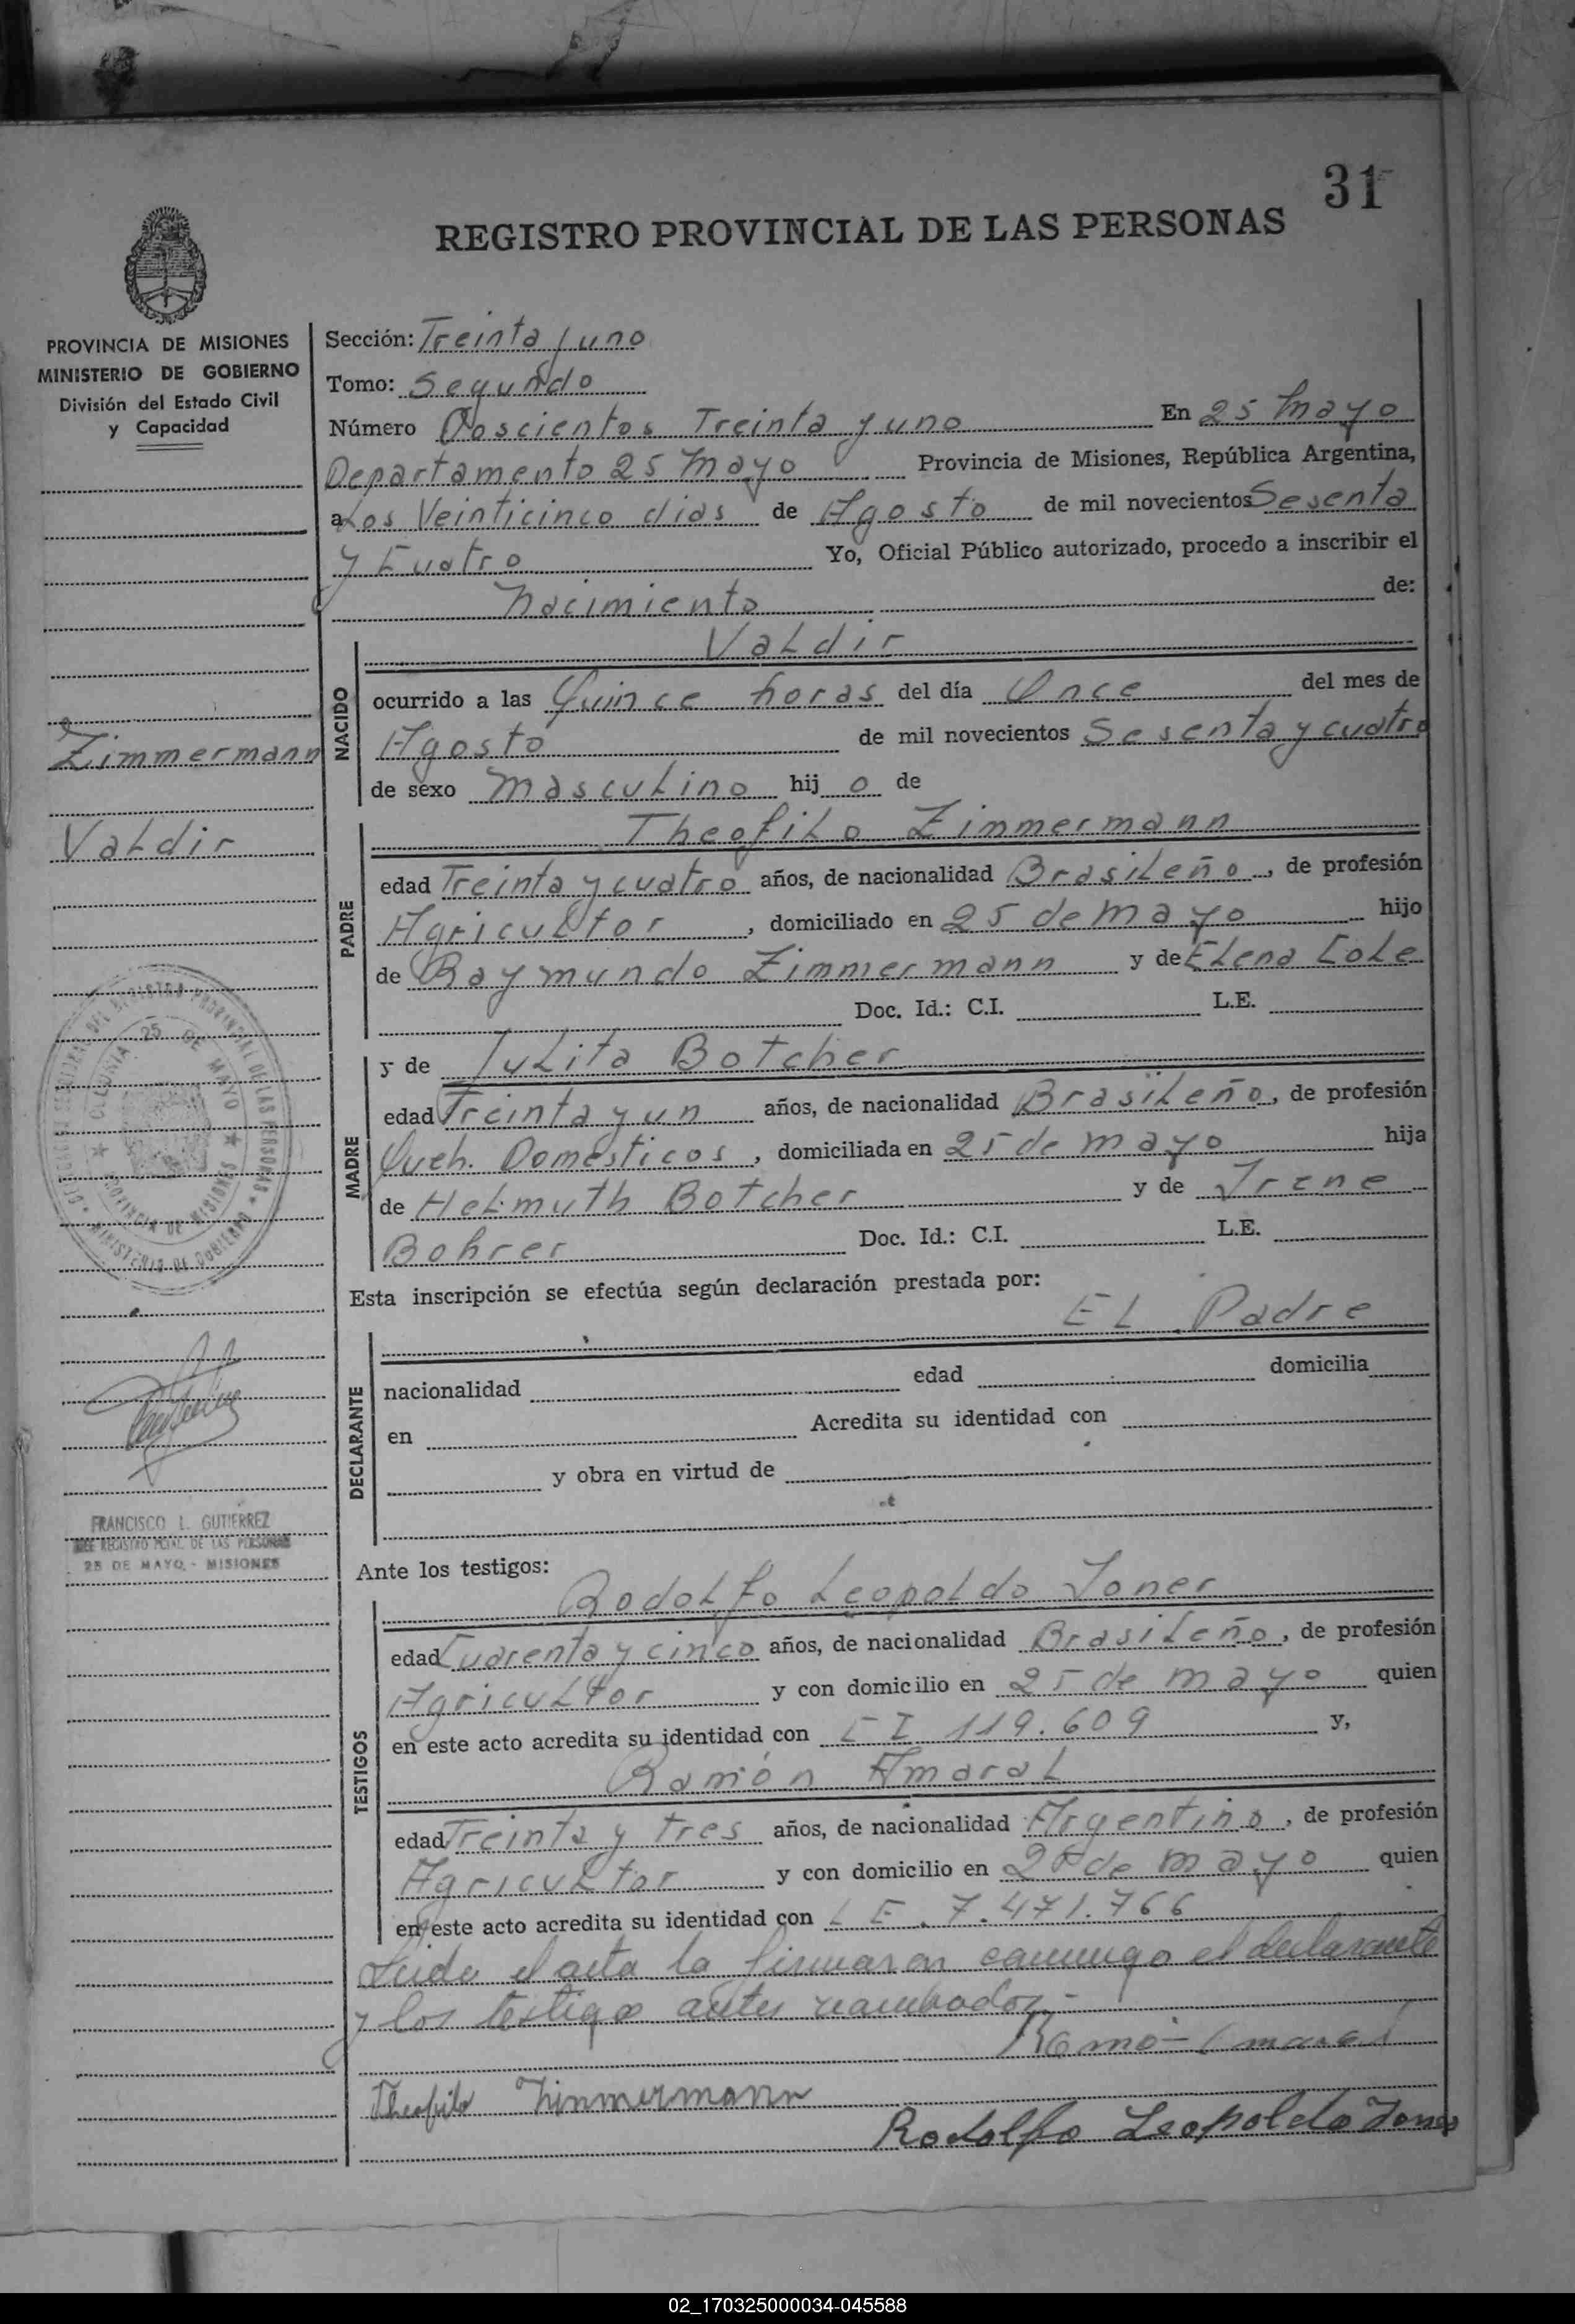 31
REGISTRO PROVINCIAL DE LAS PERSONAS
PROVINCIA DE MISIONES
MINISTERIO DE GOBIERNO
División del Estado Civil
y Capacidad
Zimmermann
Valdir
COLONIA 25 DE MAYO
PROVINCIA DE MISIONES
MINISTERIO DE GOBIERNO
FRANCISCO L. GUTIERREZ
25 DE MAYO - MISIONES
Sección: Treinta y uno
Tomo: Segundo
Número Doscientos Treinta y uno En 25 Mayo
Departamento 25 Mayo Provincia de Misiones, República Argentina,
a Los Veinticinco dias de Agosto de mil novecientos Sesenta
y Cuatro Yo, Oficial Público autorizado, procedo a inscribir el
Nacimiento de:
NACIDO
Valdir
ocurrido a las Quince horas del día Once del mes de
Agosto de mil novecientos Sesenta y cuatro
de sexo Masculino hijo de
PADRE
Theofilo Zimmermann
edad Treinta y cuatro años, de nacionalidad Brasileño, de profesión
Agricultor, domiciliado en 25 de Mayo hijo
de Raymundo Zimmermann y de Elena Cole
Doc. Id.: C.I. L.E.
MADRE
y de Julita Botcher
edad Treinta y un años, de nacionalidad Brasileño, de profesión
Queh. Domésticos, domiciliada en 25 de Mayo hija
de Helmuth Botcher y de Irene
Bohrer Doc. Id.: C.I. L.E.
Esta inscripción se efectúa según declaración prestada por:
DECLARANTE
El Padre
nacionalidad edad domicilia
en Acredita su identidad con
y obra en virtud de
Ante los testigos:
TESTIGOS
Rodolfo Leopoldo Joner
edad Cuarenta y cinco años, de nacionalidad Brasileño, de profesión
Agricultor y con domicilio en 25 de Mayo quien
en este acto acredita su identidad con C I 119.609 y,
Ramón Amaral
edad Treinta y tres años, de nacionalidad Argentino, de profesión
Agricultor y con domicilio en 25 de Mayo quien
en este acto acredita su identidad con L E. 7.471.766
Leida el acta la firmaron conmigo el declarante
y los testigos antes nombrados.-
Theofilo Zimmermann
Rodolfo Leopoldo Joner
02_170325000034-045588